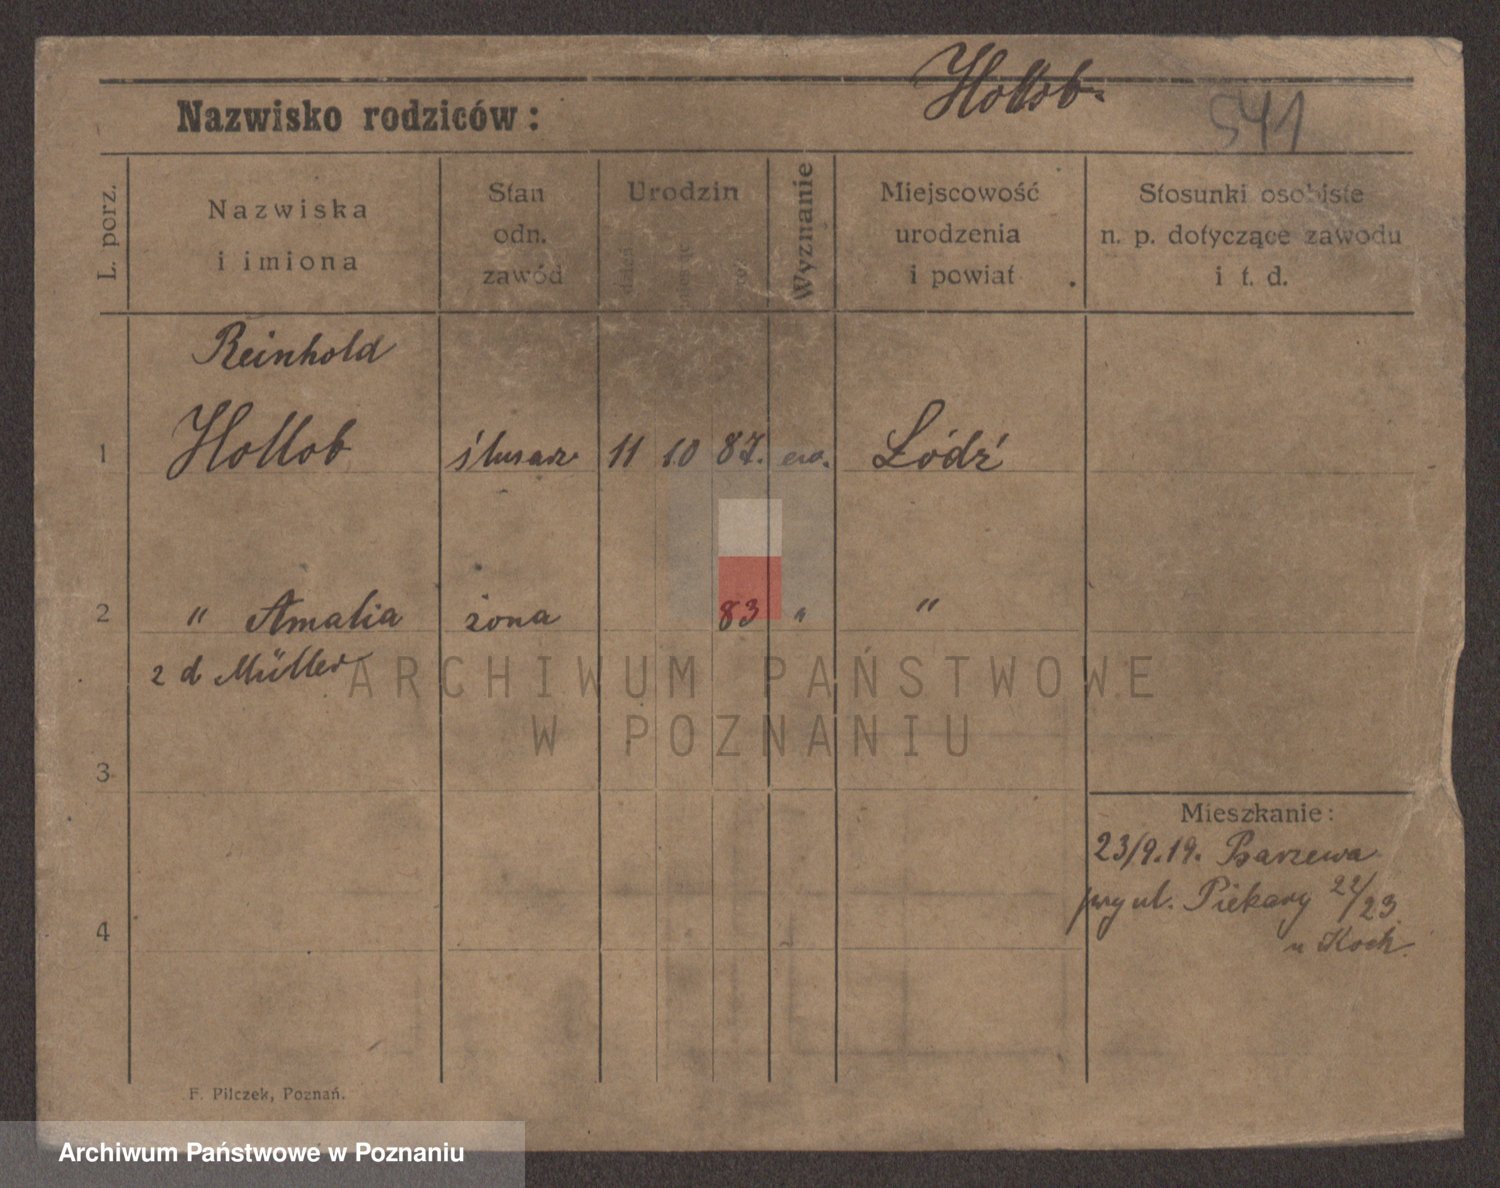 Hollob.
Nazwisko rodziców:
541
L. porz.
Nazwiska
i imiona
Stan
odn.
zawód
Urodzin
dzień
miesiąc
rok
Wyznanie
Miejscowość
urodzenia
i powiat
Stosunki osobiste
n. p. dotyczące zawodu
i t. d.
Reinhold
1 Hollob ślusarz 11 10 87. ew. Łódź
2 " Amalia żona 83 " "
z d Müller
ARCHIWUM PAŃSTWOWE
W POZNANIU
3
Mieszkanie:
23/9.19. Barzewa
przy ul. Piekary 22/23.
u Koch.
4
F. Pilczek, Poznań.
Archiwum Państwowe w Poznaniu